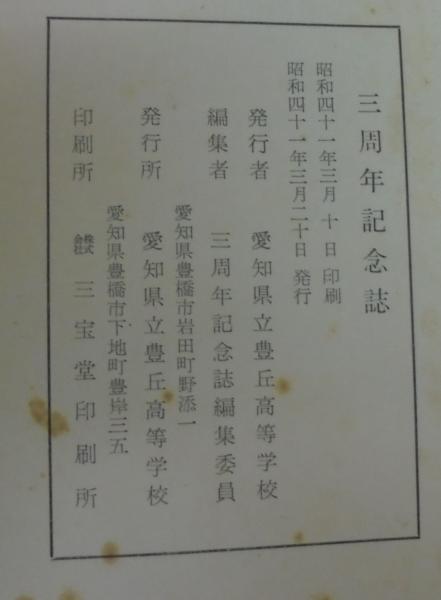 三周年記念誌
昭和四十一年三月 十 日 印刷
昭和四十一年三月二十日 発行
発行者 愛知県立豊丘高等学校
編集者 三周年記念誌編集委員
愛知県豊橋市岩田町野添一
発行所 愛知県立豊丘高等学校
愛知県豊橋市下地町豊岸三五
印刷所 株式会社 三宝堂印刷所